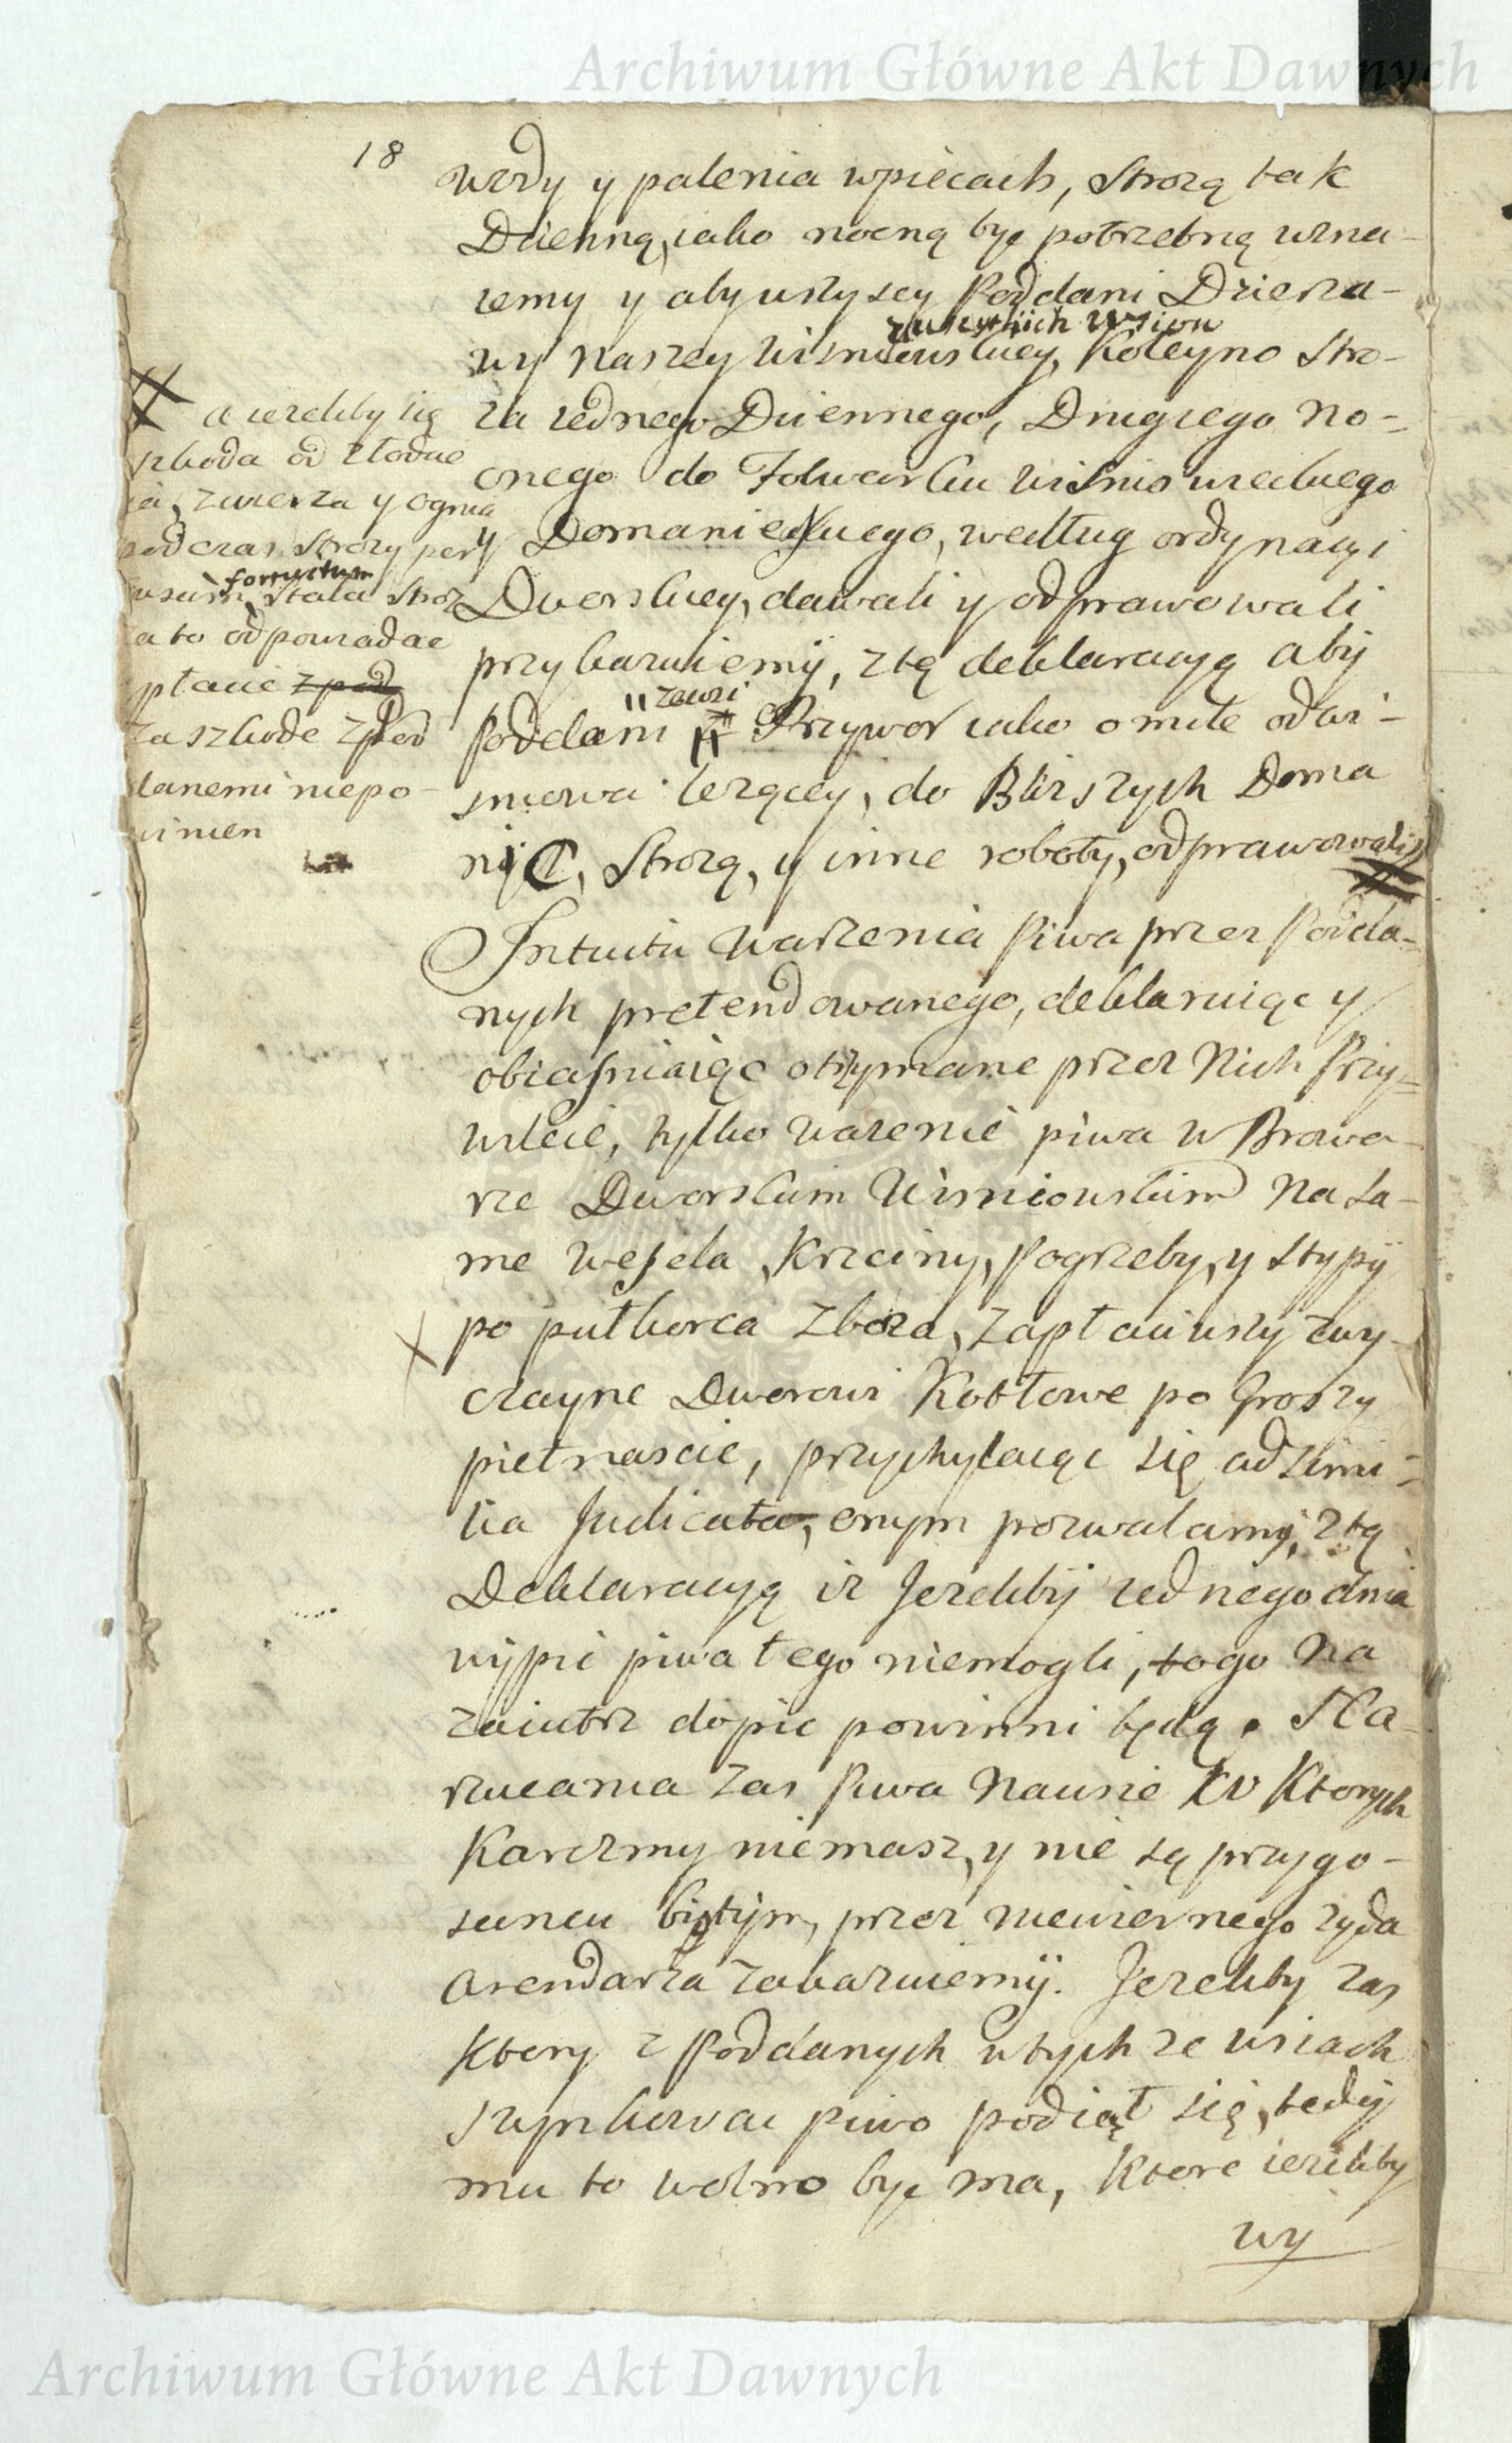 Archiwum Główne Akt Dawnych
18
wody y palenia wpiecach, Strozą tak
Dzienną, iako nocną byc potrzebną uzna-
iemy y aby wszyscy Poddani Dzierza-
wszystkich wsiow
wy Naszey Wisniowskiey, Koleyno stro-
za iednego Dziennego, Drugiego No-
cnego do Folwarku Wisniowieckiego
y Domanieckiego, według ordynacyi
Dworskiey, dawali y odprawowali
przykazuiemy, z tą deklaracyą aby
zewsi
Poddani Przywor iako o mile od Wi-
sniowa lezącey, do Bliszych Doma
nic, Strozą, y inne roboty, odprawowali
a iezeliby się
szkoda od złodzie
ia, zwierza y ognia
podczas Strozy per
incursum fortuitum stała stroz
za to odpowiadac
płacic z pod
za szkode z pod
danemi niepo-
winien
Intuitu Warzenia Piwa przez Podda-
nych pretendowanego, deklaruiąc y
obiasniaiąc otrzymane przez Nich Przy-
wileie, tylko warzenie piwa w Browa-
rze Dworskim Wisniowskim Na sa-
me Wesela, Krzciny, Pogrzeby, y stypy
po pułkorca zboza, zapłaciwszy zwy-
czayne Dworowi Kotłowe po groszy
pietnascie, przychylaiąc się ad simi-
lia Judicata, onym pozwalamy, z tą
Deklaracyą iz Jezeliby iednego dnia
wypic piwa tego niemogli, togo Na
zaiutrz dopic powinni będą. Na-
rzucania zas Piwa Nawsie w Ktorych
Karczmy niemasz, y nie są przy go-
scincu bitym, przez niewiernego zyda
arendarza zakazuiemy. Jezeliby zas
Ktory z Poddanych w tych ze wsiach
szynkowac piwo podiął się, tedy
mu to wolno byc ma, Ktore iezeliby
wy
Archiwum Główne Akt Dawnych